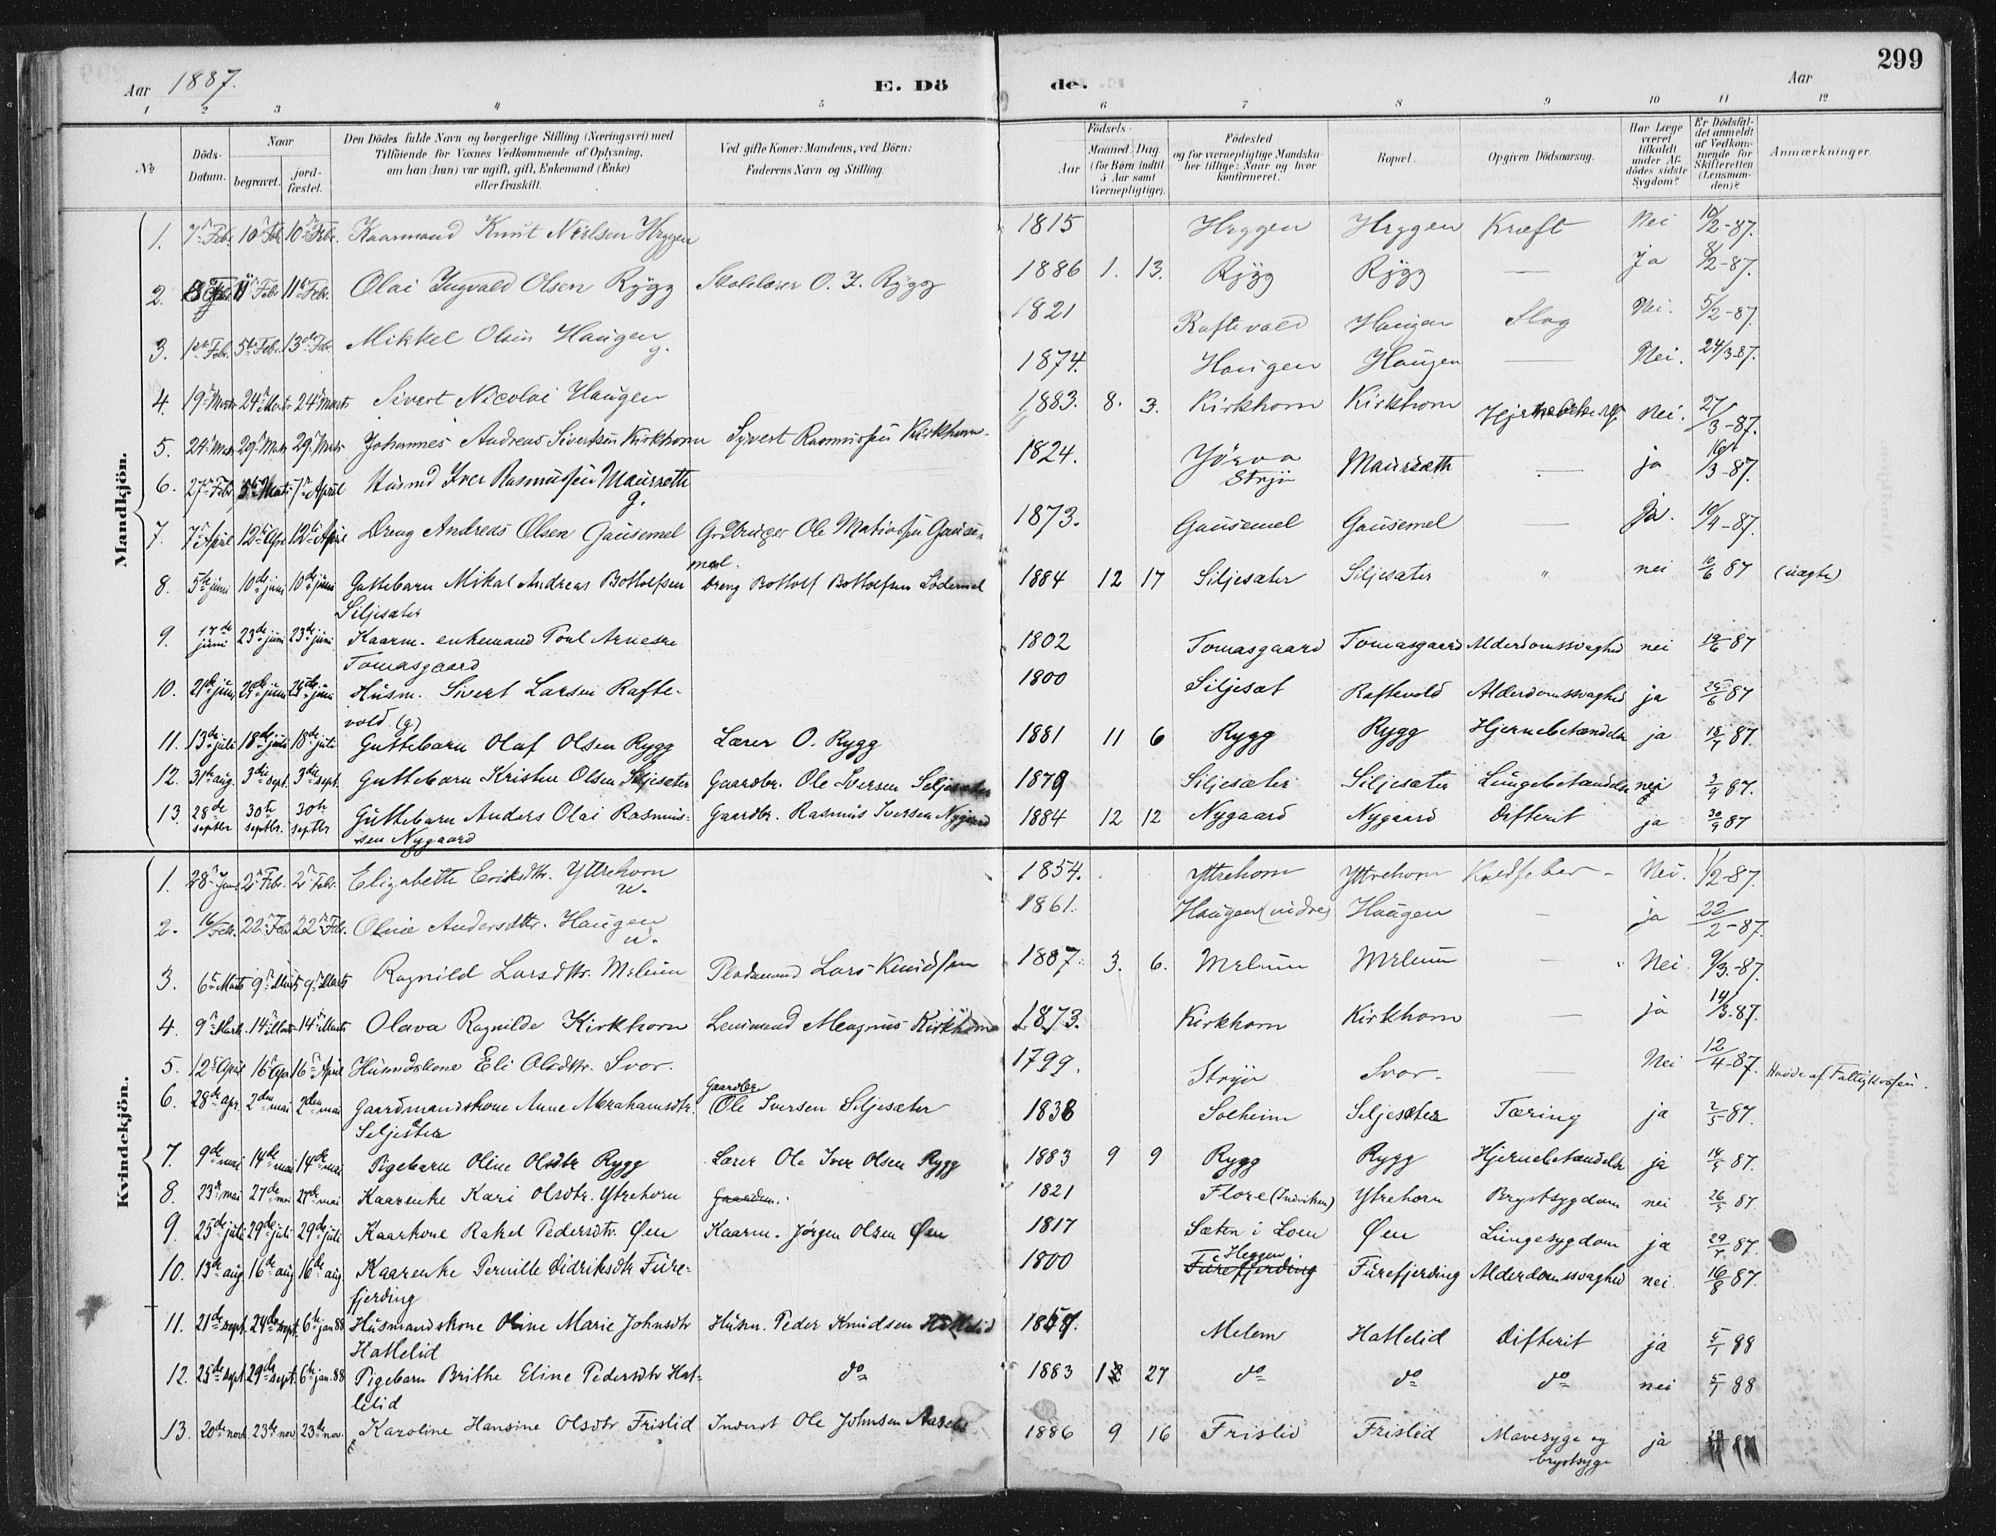 299
Aar 1887. E. Dö de. Aar
1 2 3 4 5 6 7 8 9 10 11 12
No Döds-Datum. Naar begravet. jord-fæstet. Den Dödes fulde Navn og borgerlige Stilling (Næringsvei) med Tilföiende for Voxnes Vedkommende af Oplysning, om han (hun) var ugift, gift, Enkemand (Enke) eller fraskilt. Ved gifte Koner: Mandens, ved Börn: Faderens Navn og Stilling. Födsels- Aar Maaned Dag (for Börn indtil 5 Aar samt Værnepligtige). Födested og for værnepligtige Mandskaber tillige: Naar og hvor konfirmeret. Bopæl. Opgiven Dödsaarsag. Har Læge været tilkaldt under Afdödes sidste Sygdom? Er Dödsfaldet anmeldt af Vedkommende for Skifteretten (Lensmanden)? Anmærkninger.
Mandkjön.
1. 7 Febr. 10 Feb. 10 Febr. Kaarmand Knut Nielsen Heggen 1815 Heggen Heggen Kræft Nei 10/2-87.
2. 8 Febr 11 Febr 11 Febr. Olai Ingvald Olsen Rygg Skolelærer O. I. Rygg 1886 1. 13. Rygg Rygg — Ja 8/2-87.
3. 1ste Febr. 5te Febr. 13de Febr. Mikkel Olsen Haugen g. 1821 Raftevold Haugen Slag Nei. 5/2-87.
4. 19 Marts 24 Marts 24 Marts Sivert Nicolai Haugen 1874. Haugen Haugen — Nei. 24/3-87.
5. 24 Marts 29 Marts 29 Marts Johannes Andreas Sivertsen Kirkhorn Syvert Rasmussen Kirkhorn 1883. 8. 3. Kirkhorn Kirkhorn Nei. 27/3-87.
6. 27 Febr. 5 Marts 7 April Husmd Iver Rasmussen Maurseth g. 1824. Stryn Maurseth — ja /3-87.
7. 7 April 12 Apr 12 April Dreng Andreas Olsen Gausemel Grdbruger Ole Matiassen Gausemel. 1873. Gausemel Gausemel — Ja. 10/4-87.
8. 5te juni 10de juni 10de juni Guttebarn Mikal Andreas Botholfsen Siljesæter Dreng Botholf Botholfsen Lödemel 1884 12 17 Siljesæter Siljesæter " nei 10/6 87 (uægte)
9. 17de juni 23de juni 23de juni Kaarm. enkemand Poul Arnesen Tomasgaard 1802 Tomasgaard Tomasgaard Alderdomssvaghed nei 19/6 87
10. 21de juni 25de juni 25de juni Husm. Sivert Larsen Raftevold (g) 1800 Siljesæt Raftevold Alderdomssvaghed ja 25/6 87
11. 13de juli 18de juli 18de juli Guttebarn Olaf Olsen Rygg Lærer O. Rygg 1881 11 6 Rygg Rygg Hjernebetændelse ja 18/7 87.
12. 31te aug. 3die sept. 3die sept. Guttebarn Kristen Olsen Siljesæter Gaardbr. Ole Iversen Siljesæter 1879 Siljesæter Siljesæter Lungebetændelse nei 3/9 87.
13. 28de septbr 30te septbr. 30te septbr Guttebarn Anders Olai Rasmussen Nygaard Gaardbr. Rasmus Iversen Nygaard 1884 12 12 Nygaard Nygaard Difterit ja 30/9 87
Kvindekjön.
1. 28 Jan. 2 Febr. 2 Febr. Elizabeth Eriksdtr. Yttrehorn u. 1854. Yttrehorn Yttrehorn Nei. 1/2-87.
2. 16/Febr. 22 Febr 22 Feb. Oline Andersdtr. Haugen u. 1861. Haugen (indre) Haugen — ja 22/2-87.
3. 6 Marts 9 Marts 9 Marts Ragnild Larsdtr. Melum Pladsmand Lars Knudsen 1887. 3. 6. Melum Melum — Nei. 9/3-87.
4. 9 Marts 14 Marts 14 Marts Olava Ragnilde Kirkhorn Leimand Magnus Kirkhorn 1873. Kirkhorn Kirkhorn — ja 14/3-87.
5. 12 April 16 Apr 16 April Husmdskone Eli Olsdtr. Svor. 1799. Stryn Svor. — Nei 12/4-87. Havde af Fattigkassen.
6. 28de apr. 2den mai 2den mai Gaardmandskone Anne Abrahamsdtr. Siljesæter Gaardbr Ole Iversen Siljesæter 1838 Solheim Siljesæter Tæring ja 2/5 87.
7. 9de mai 14de mai 14de mai Pigebarn Oline Olsdtr Rygg Lærer Ole Iver Olsen Rygg 1883 9 9 Rygg Rygg Hjernebetændelse ja 14/5 87.
8. 23de mai 27de mai 27de mai Kaarenke Kari Olsdtr. Ytrehorn 1821 Flore (Indviken) Ytrehorn Brystsygdom nei 26/5 87.
9. 25de juli 29de juli 29de juli Kaarkone Rakel Pedersdtr Øen Kaarm. Jørgen Olsen Øen 1817 Sæten i Loen Øen Lungesygdom ja 29/7 87.
10. 13de aug 16de aug 16de aug Kaarenke Pernille Didriksdtr Furefjerding 1800 Furefjerding Heggen Furefjerding Alderdomssvaghed nei 16/8 87.
11. 21de sept. 24de sept. 6te jan 88 Husmandskone Oline Marie Johnsdtr Hatlelid Husm. Peder Knudsen Hatlelid Melem Hatlelid Difterit ja 5/1 88
12. 25de sept. 29de sept. 6te jan. 88 Pigebarn Brithe Eline Pedersdtr Hatlelid do 1883 12 27 do do do nei 5/1 88
13. 20de novb 23de nov 23de nov. Karoline Hansine Olsdtr Frislid Inderst Ole Johnsen Aaseb 1886 9 16 Frislid Frislid Mavesyge og brystsyge ja